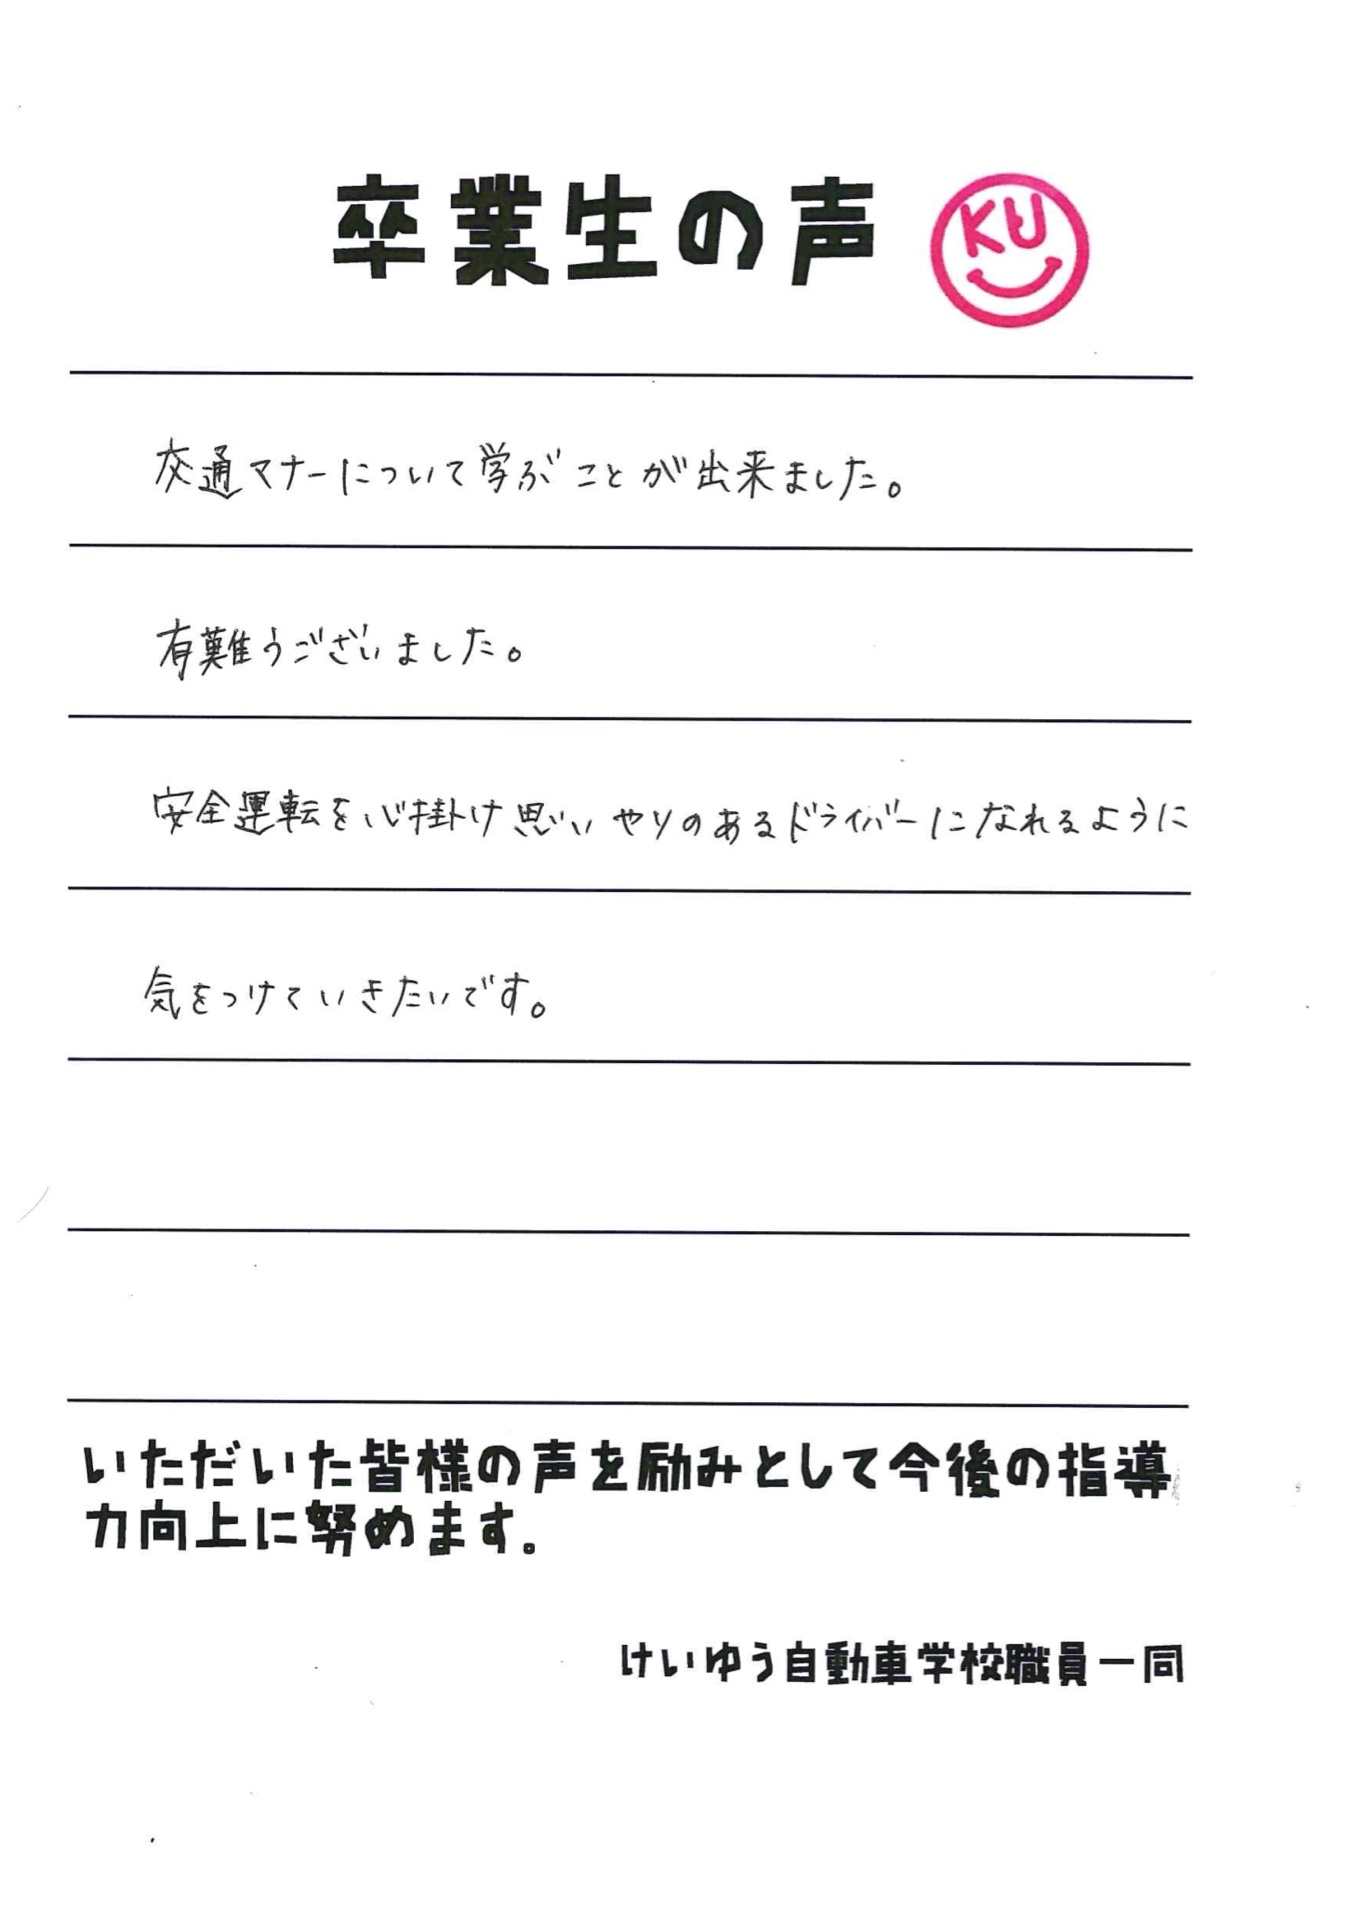 卒業生の声
KU
交通マナーについて学ぶことが出来ました。
有難うございました。
安全運転を心掛け思いやりのあるドライバーになれるように
気をつけていきたいです。
いただいた皆様の声を励みとして今後の指導
力向上に努めます。
けいゆう自動車学校職員一同